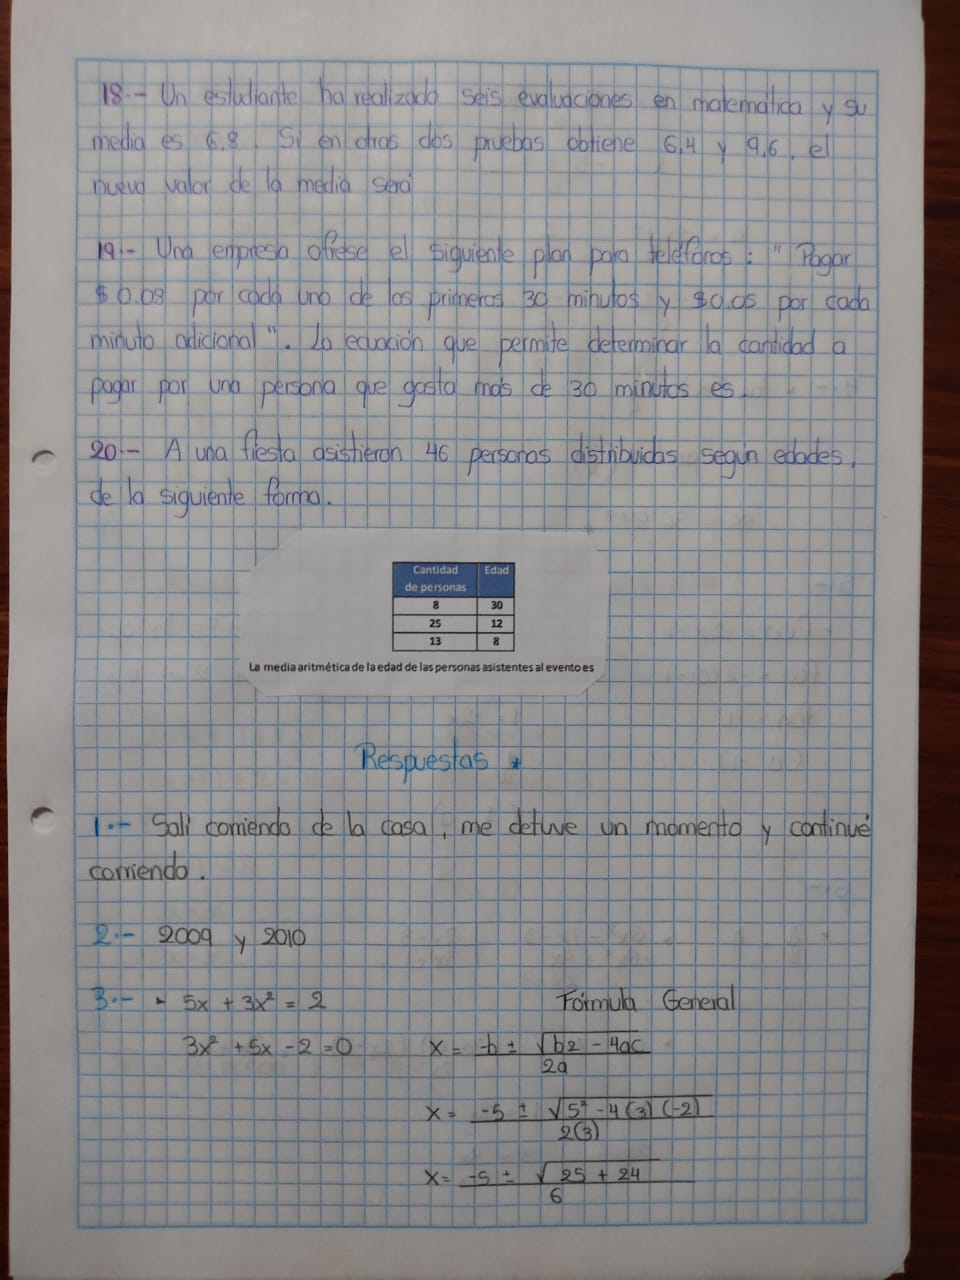 18.- Un estudiante ha realizado seis evaluaciones en matemática y su
media es 6,8. Si en otras dos pruebas obtiene 6,4 y 9,6, el
nuevo valor de la media será
19.- Una empresa ofrese el siguiente plan para teléfonos: "Pagar
$0.08 por cada uno de los primeros 30 minutos y $0.05 por cada
minuto adicional". La ecuación que permite determinar la cantidad a
pagar por una persona que gasta más de 30 minutos es.
20.- A una fiesta asistieron 46 personas distribuidas según edades,
de la siguiente forma.
Cantidad de personas Edad
8 30
25 12
13 8
La media aritmética de la edad de las personas asistentes al evento es
Respuestas *
1.- Salí corriendo de la casa, me detuve un momento y continué
corriendo.
2.- 2009 y 2010
3.- 5x + 3x² = 2 Fórmula General
3x² + 5x - 2 = 0 x = -b ± √b2 - 4ac
2a
x = -5 ± √5² - 4(3)(-2)
2(3)
x = -5 ± √25 + 24
6